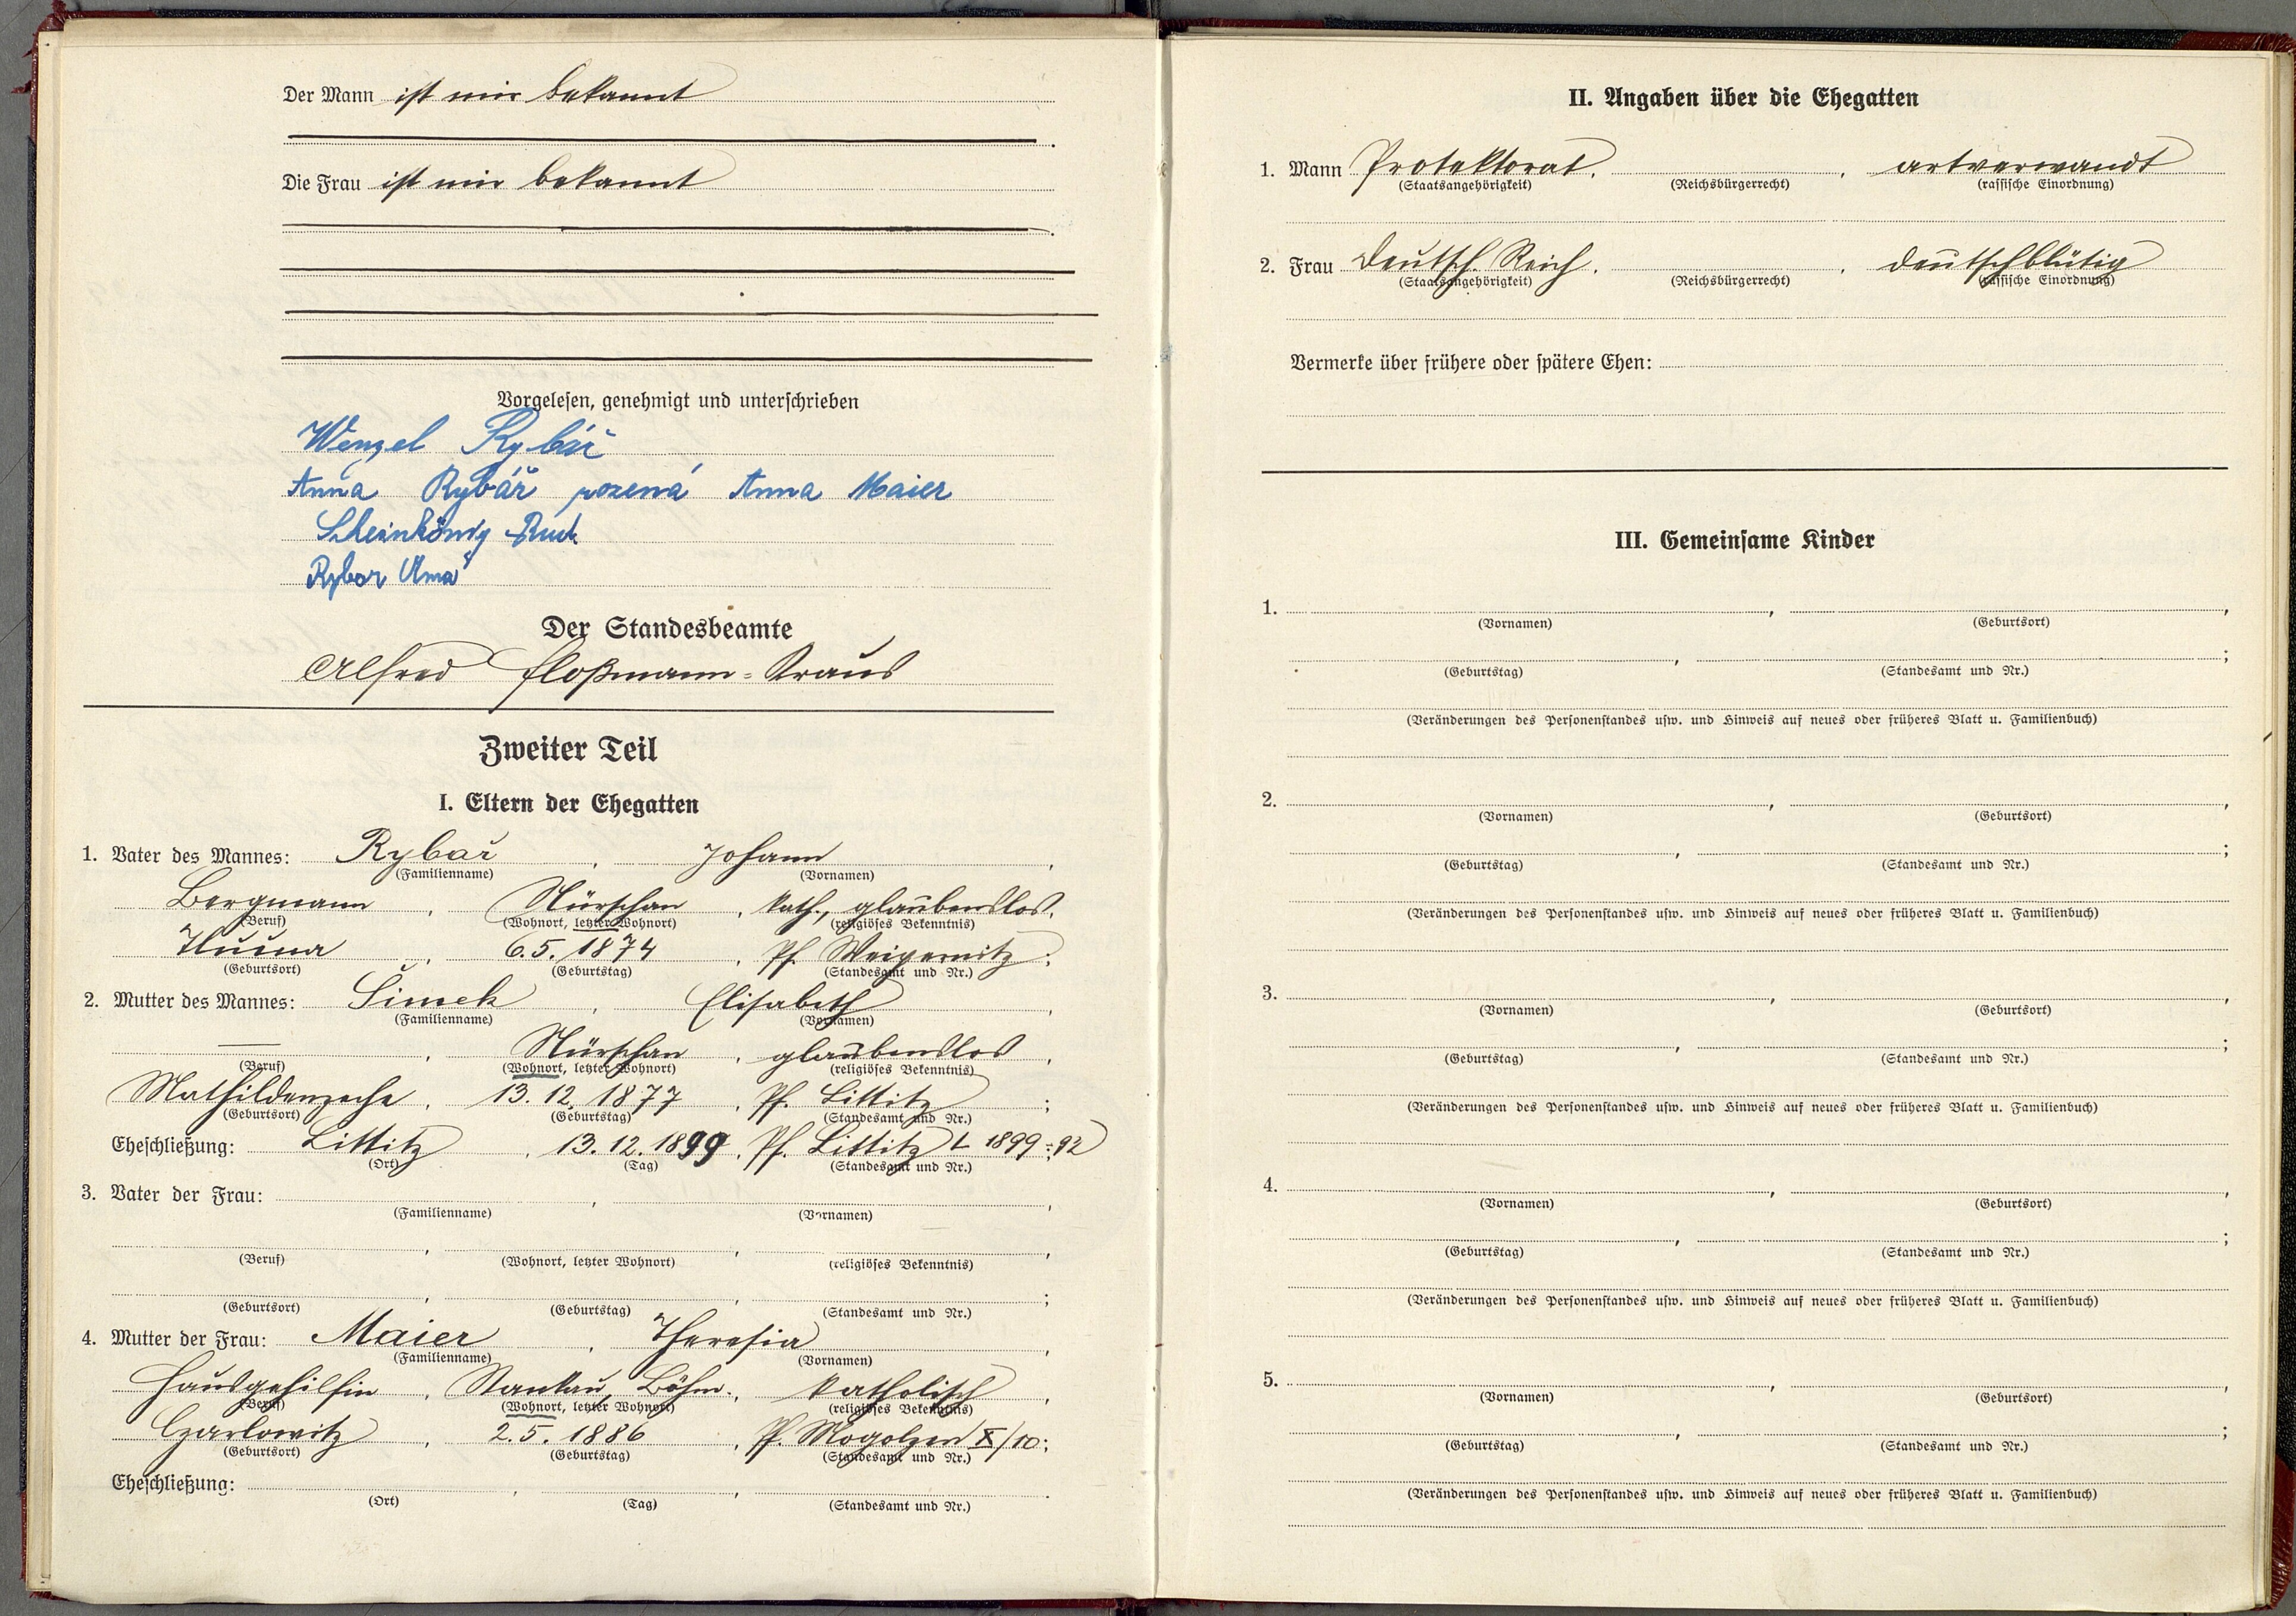 Der Mann ist mir bekannt
Die Frau ist mir bekannt
Vorgelesen, genehmigt und unterschrieben
Wenzel Rybář
Anna Rybář rozená Anna Maier
Scheinkönig Rud.
Rybar
Der Standesbeamte
Alfred Floßmann-Kraus
Zweiter Teil
I. Eltern der Ehegatten
1. Vater des Mannes: Rybař, Johann,
(Familienname) (Vornamen)
Bergmann, Nürschan, kath., glaubenslos,
(Beruf) (Wohnort, letzter Wohnort) (religiöses Bekenntnis)
6.5.1874, Pf. Weipernitz;
(Geburtsort) (Geburtstag) (Standesamt und Nr.)
2. Mutter des Mannes: Šimek, Elisabeth,
(Familienname) (Vornamen)
—, Nürschan, glaubenslos,
(Beruf) (Wohnort, letzter Wohnort) (religiöses Bekenntnis)
Mathildenzeche, 13.12.1877, Pf. Littitz;
(Geburtsort) (Geburtstag) (Standesamt und Nr.)
Eheschließung: Littitz, 13.12.1899, Pf. Littitz L 1899:92
(Ort) (Tag) (Standesamt und Nr.)
3. Vater der Frau:
(Familienname) (Vornamen)
(Beruf) (Wohnort, letzter Wohnort) (religiöses Bekenntnis)
(Geburtsort) (Geburtstag) (Standesamt und Nr.)
4. Mutter der Frau: Maier, Theresia,
(Familienname) (Vornamen)
Hausgehilfin, Stankau, Böhm., katholisch,
(Beruf) (Wohnort, letzter Wohnort) (religiöses Bekenntnis)
Czarlowitz, 2.5.1886, Pf. Mogolzen X/10;
(Geburtsort) (Geburtstag) (Standesamt und Nr.)
Eheschließung:
(Ort) (Tag) (Standesamt und Nr.)
II. Angaben über die Ehegatten
1. Mann Protektorat, artverwandt
(Staatsangehörigkeit) (Reichsbürgerrecht) (rassische Einordnung)
2. Frau Deutsch. Reich, deutschblütig
(Staatsangehörigkeit) (Reichsbürgerrecht) (rassische Einordnung)
Vermerke über frühere oder spätere Ehen:
III. Gemeinsame Kinder
1.
(Vornamen) (Geburtsort)
(Geburtstag) (Standesamt und Nr.)
(Veränderungen des Personenstandes usw. und Hinweis auf neues oder früheres Blatt u. Familienbuch)
2.
(Vornamen) (Geburtsort)
(Geburtstag) (Standesamt und Nr.)
(Veränderungen des Personenstandes usw. und Hinweis auf neues oder früheres Blatt u. Familienbuch)
3.
(Vornamen) (Geburtsort)
(Geburtstag) (Standesamt und Nr.)
(Veränderungen des Personenstandes usw. und Hinweis auf neues oder früheres Blatt u. Familienbuch)
4.
(Vornamen) (Geburtsort)
(Geburtstag) (Standesamt und Nr.)
(Veränderungen des Personenstandes usw. und Hinweis auf neues oder früheres Blatt u. Familienbuch)
5.
(Vornamen) (Geburtsort)
(Geburtstag) (Standesamt und Nr.)
(Veränderungen des Personenstandes usw. und Hinweis auf neues oder früheres Blatt u. Familienbuch)